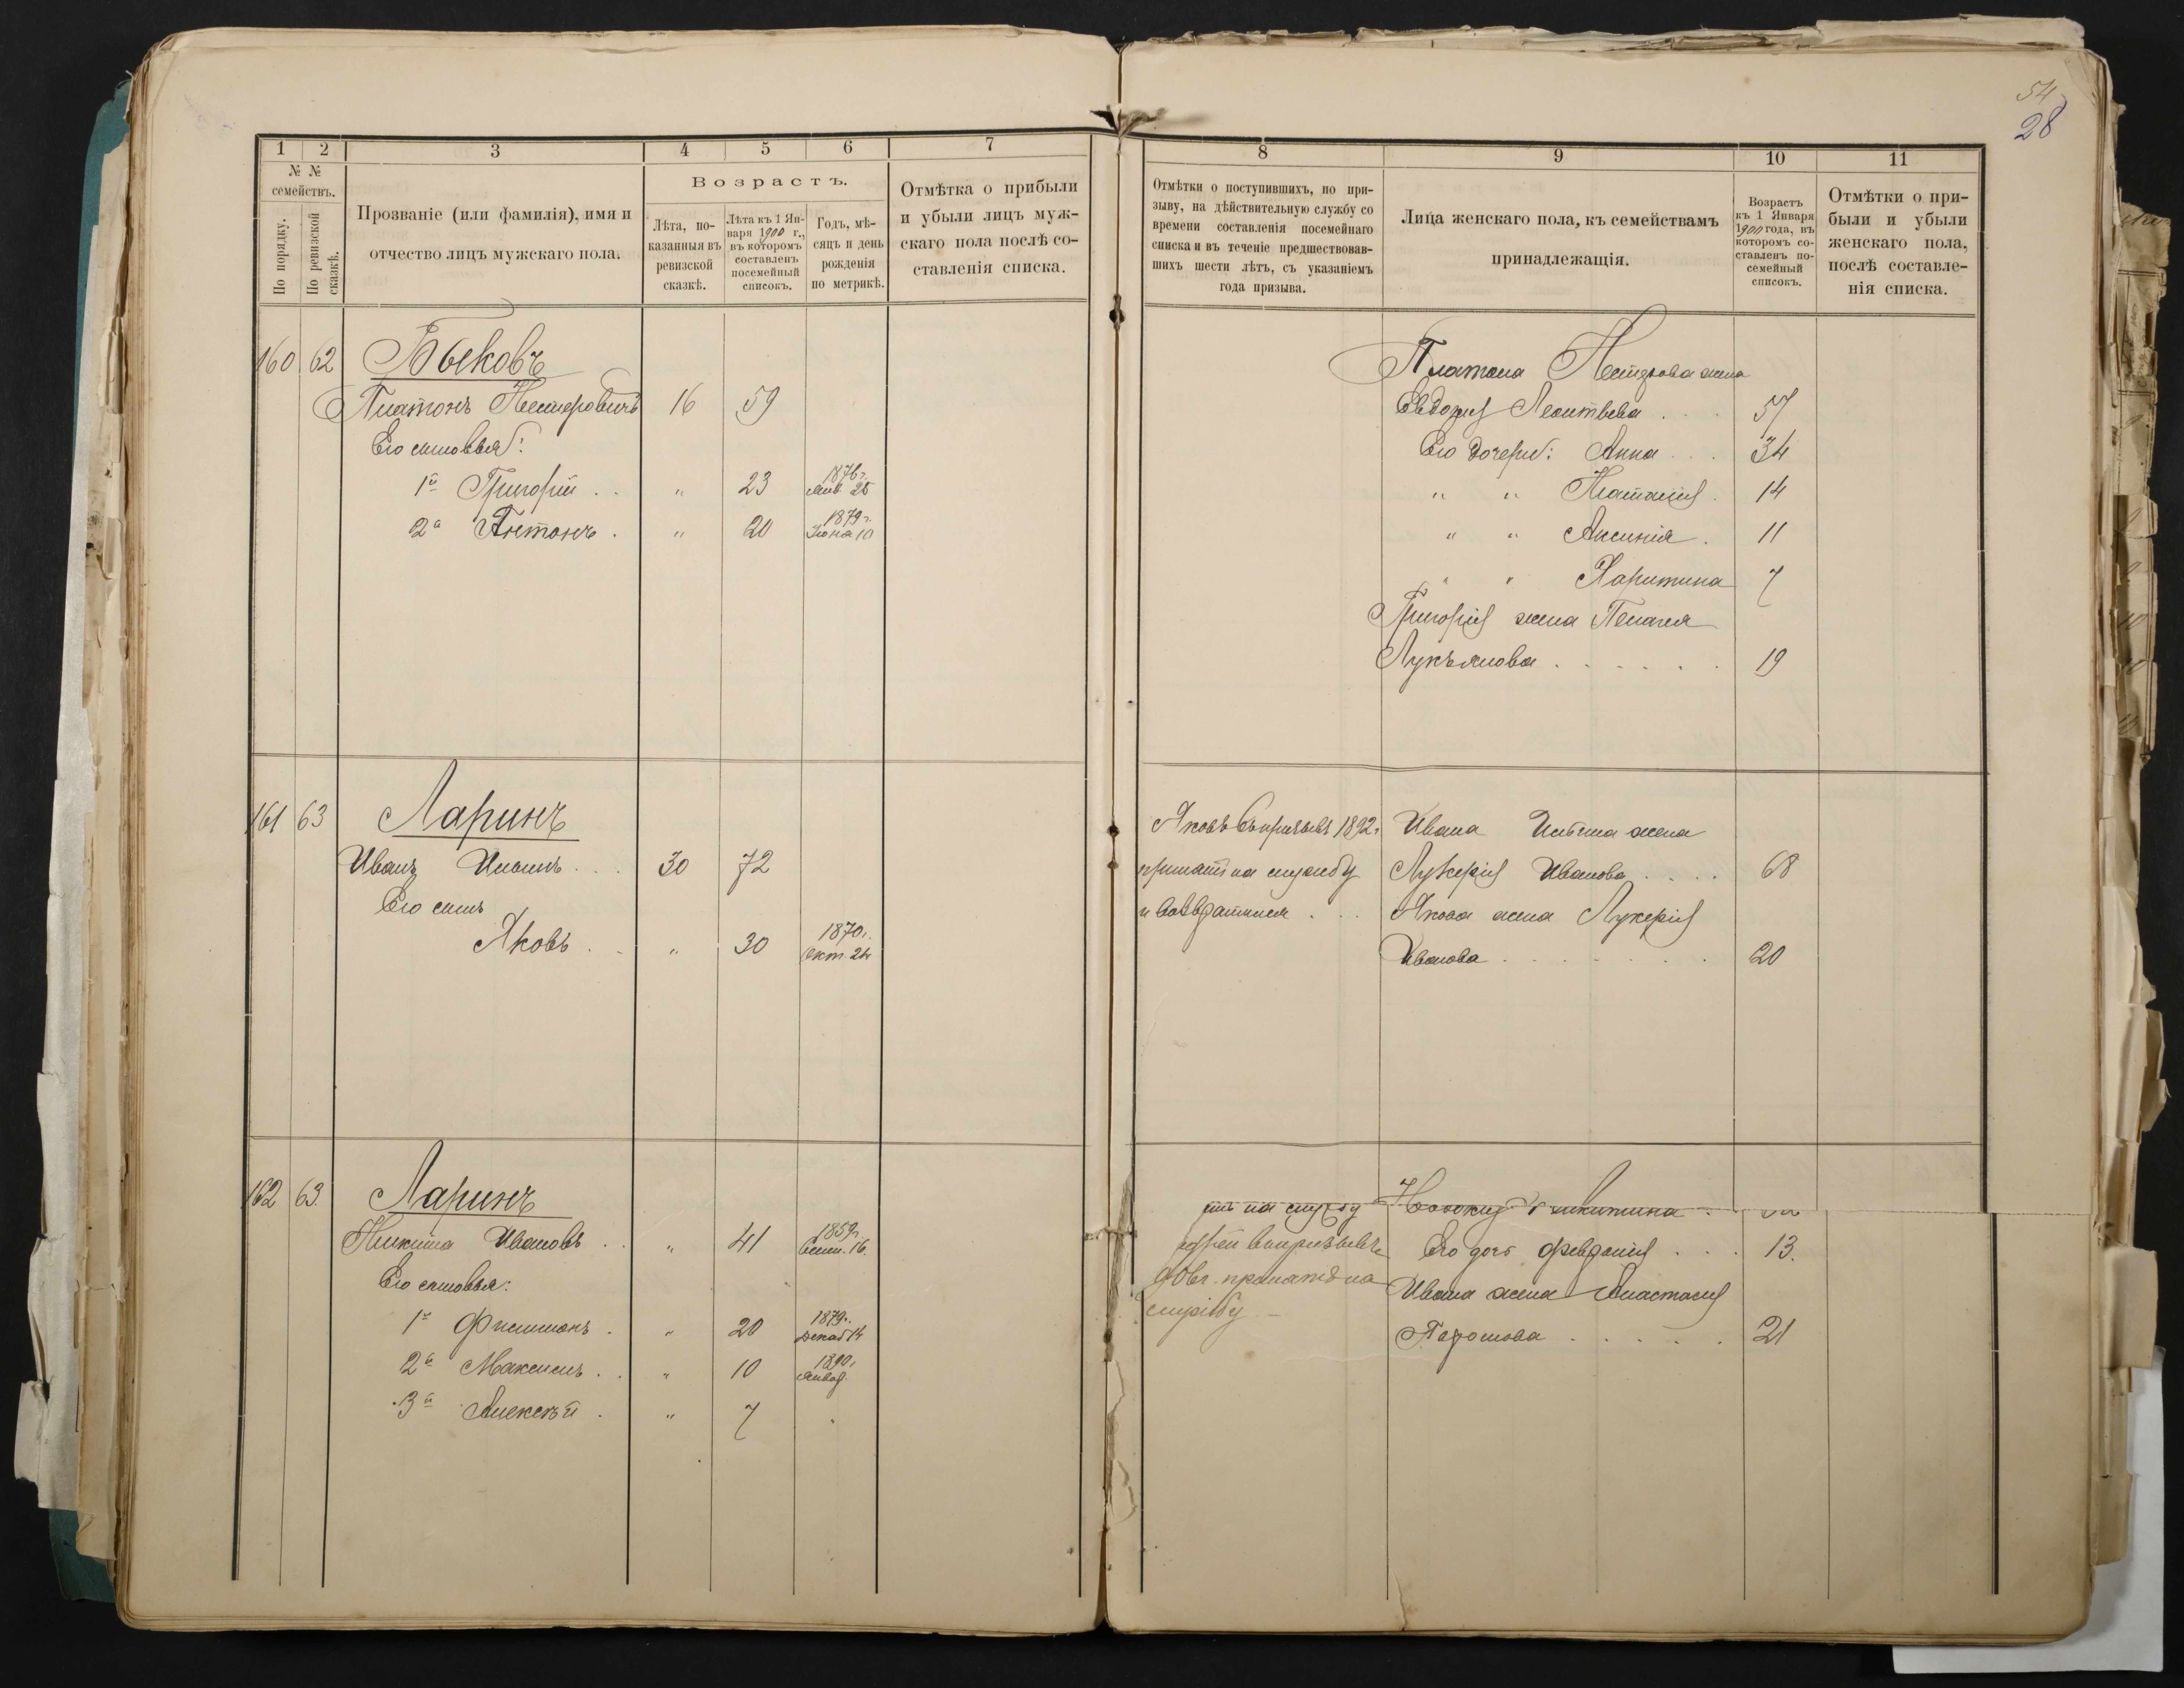 54
28
1 2 3 4 5 6 7
№ №
семействъ.
По порядку.
По ревизской
сказкѣ.
Прозваніе (или фамилія), имя и
отчество лицъ мужскаго пола.
Возрастъ.
Лѣта, по-
казанныя въ
ревизской
сказкѣ.
Лѣта къ 1 Ян-
варя 1900 г.,
въ которомъ
составленъ
посемейный
списокъ.
Годъ, мѣ-
сяцъ и день
рожденія
по метрикѣ.
Отмѣтка о прибыли
и убыли лицъ муж-
скаго пола послѣ со-
ставленія списка.
160 62 Быковъ
Платонъ Нестеровичъ 16 59
Его сыновья:
1й Григорій . . " 23 1876 г. Янв. 25
2й Антонъ . " 20 1879 г. Іюня 10
161 63 Ларинъ
Иванъ . . . 30 72
Его сынъ
Яковъ . . " 30 1870 г. Окт. 24
162 63. Ларинъ
Никита Ивановъ . . " 41 1859 г. Сент. 16.
Его сыновья:
1й Филимонъ . " 20 1879 г. Декаб 14
2й Максимъ . . " 10 1890 г. Январ.
3й Алексѣй . " 7
8 9 10 11
Отмѣтки о поступившихъ, по при-
зыву, на дѣйствительную службу со
времени составленія посемейнаго
списка и въ теченіе предшествовав-
шихъ шести лѣтъ, съ указаніемъ
года призыва.
Лица женскаго пола, къ семействамъ
принадлежащія.
Возрастъ
къ 1 Января
1900 года, въ
которомъ со-
ставленъ по-
семейный
списокъ.
Отмѣтки о при-
были и убыли
женскаго пола,
послѣ составле-
нія списка.
Платона Нестерова жена
Евдокія Леонтьева . . . 57
Его дочери: Анна . . . 34
" " Наталія . 14
" " Аксинія . 11
" " Харитина 7
Григорія жена Пелагея
Лукьянова . . . . . . 19
Яковъ въ призывъ 1892 г.
принятъ на службу
и возвратился . . .
Ивана жена
Лукерія Иванова . . . . 68
Якова жена Лукерія
Иванова . . . . . . . 20
на службу
въ призывъ
принятъ на
службу
Никитина
Его дочь Февронія . . . 13.
Ивана жена Анастасія
. . . . . 21